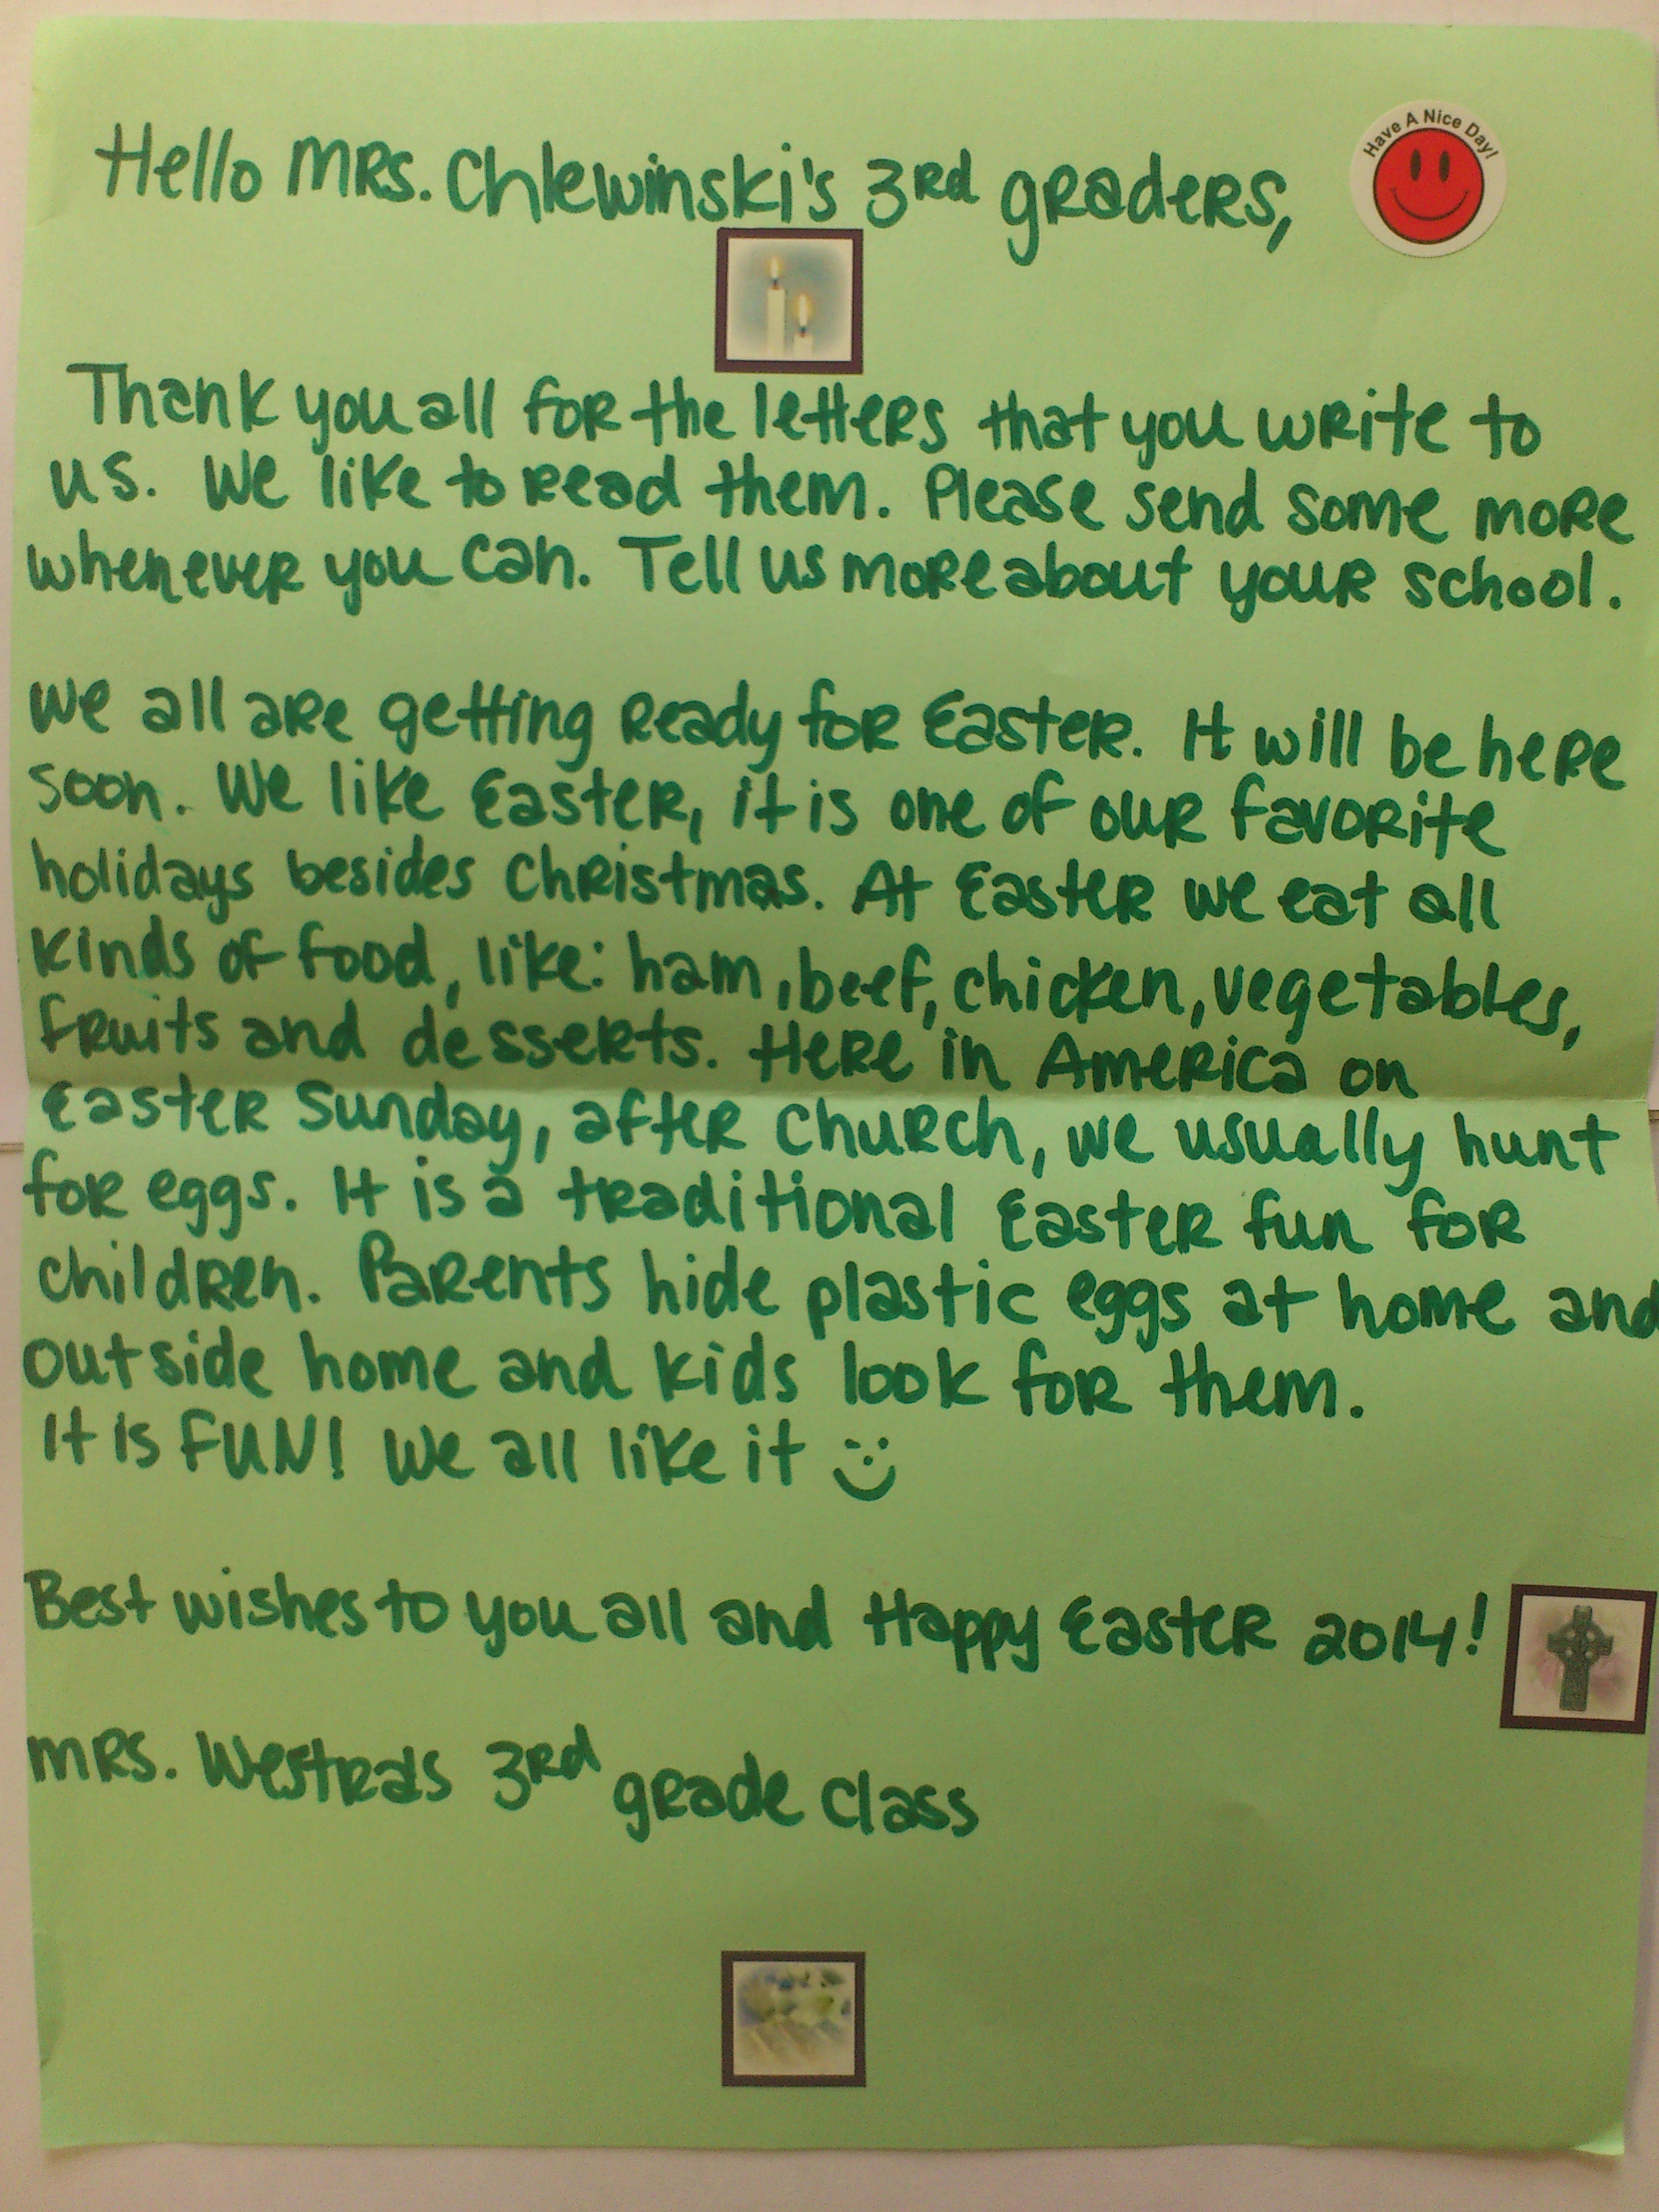 Hello MRS. Chlewinski's 3rd graders,
Have A Nice Day!
Thank you all for the letters that you write to
us. We like to read them. Please send some more
whenever you can. Tell us more about your school.
We all are getting ready for Easter. It will be here
soon. We like Easter, it is one of our favorite
holidays besides Christmas. At Easter we eat all
kinds of food, like: ham, beef, chicken, vegetables,
fruits and desserts. Here in America on
Easter Sunday, after church, we usually hunt
for eggs. It is a traditional Easter fun for
children. Parents hide plastic eggs at home and
outside home and kids look for them.
It is FUN! We all like it
Best wishes to you all and Happy Easter 2014!
MRS. Westra's 3rd grade class